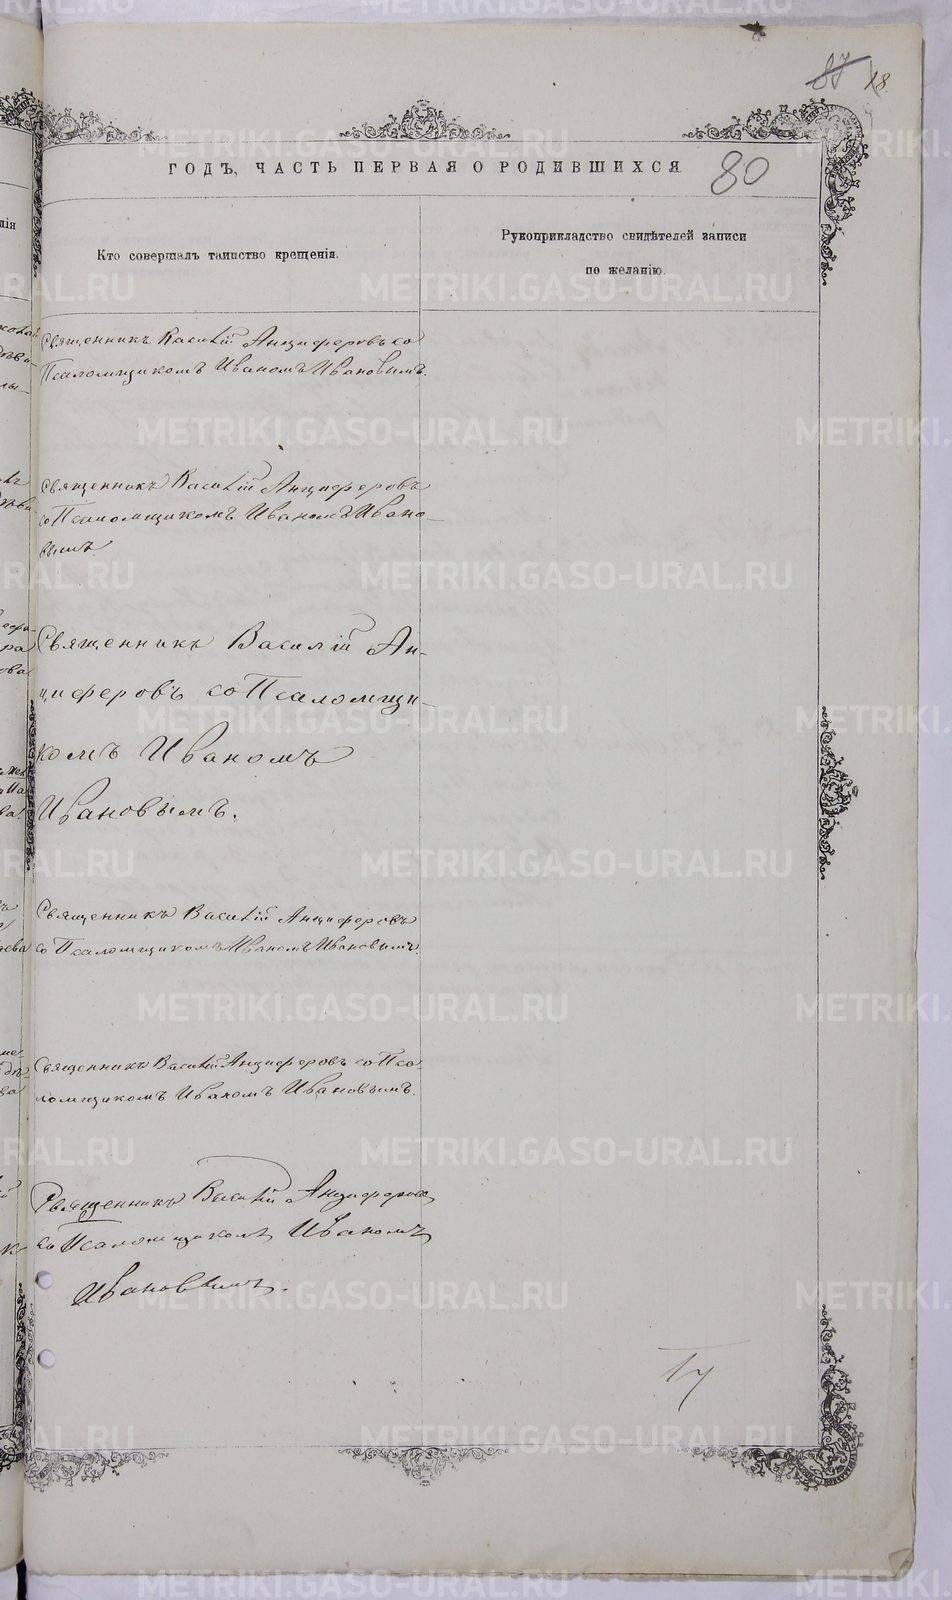 87 18
ГОДЪ, ЧАСТЬ ПЕРВАЯ О РОДИВШИХСЯ 80
Кто совершалъ таинство крещенія.
Рукоприкладство свидѣтелей записи
по желанію.
Священникъ Василій Анциферовъ со
Псаломщикомъ Иваномъ Ивановымъ.
Священникъ Василій Анциферовъ
со Псаломщикомъ Иваномъ Ивано-
вымъ
Священникъ Василій Ан-
циферовъ со Псаломщи-
комъ Иваномъ
Ивановымъ.
Священникъ Василій Анциферовъ
со Псаломщикомъ Иваномъ Ивановымъ.
Священникъ Василій Анциферовъ со Пса
ломщикомъ Иваномъ Ивановымъ.
Священникъ Василій Анциферовъ
со Псаломщикомъ Иваномъ
Ивановымъ.
METRIKI.GASO-URAL.RU